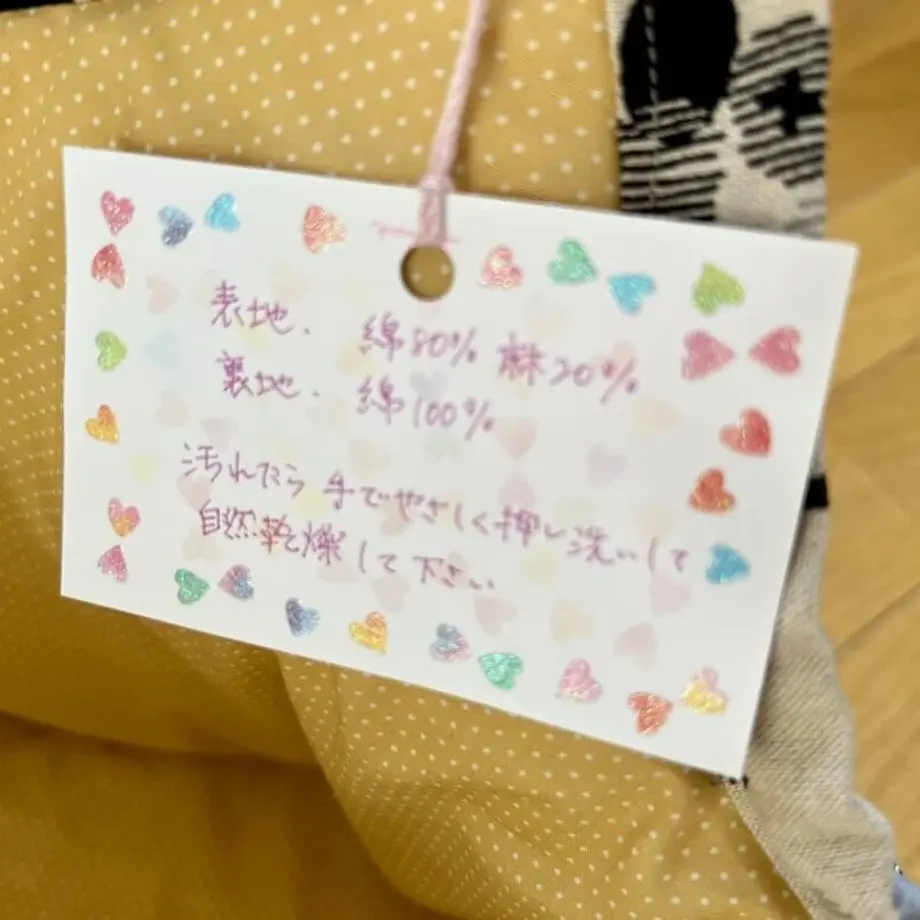 表地. 綿80% 麻20%
裏地. 綿100%
汚れたら 手でやさしく押し洗いして
自然乾燥して下さい